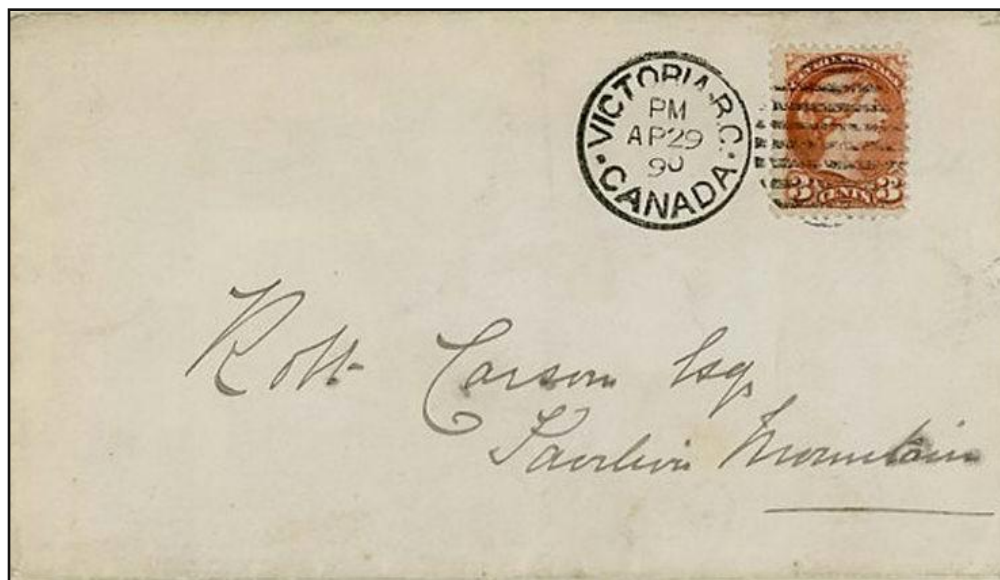 VICTORIA B.C.
PM
AP 29
90
CANADA
3 CENTS 3
Robt Carson Esq.
Pavilion Mountain